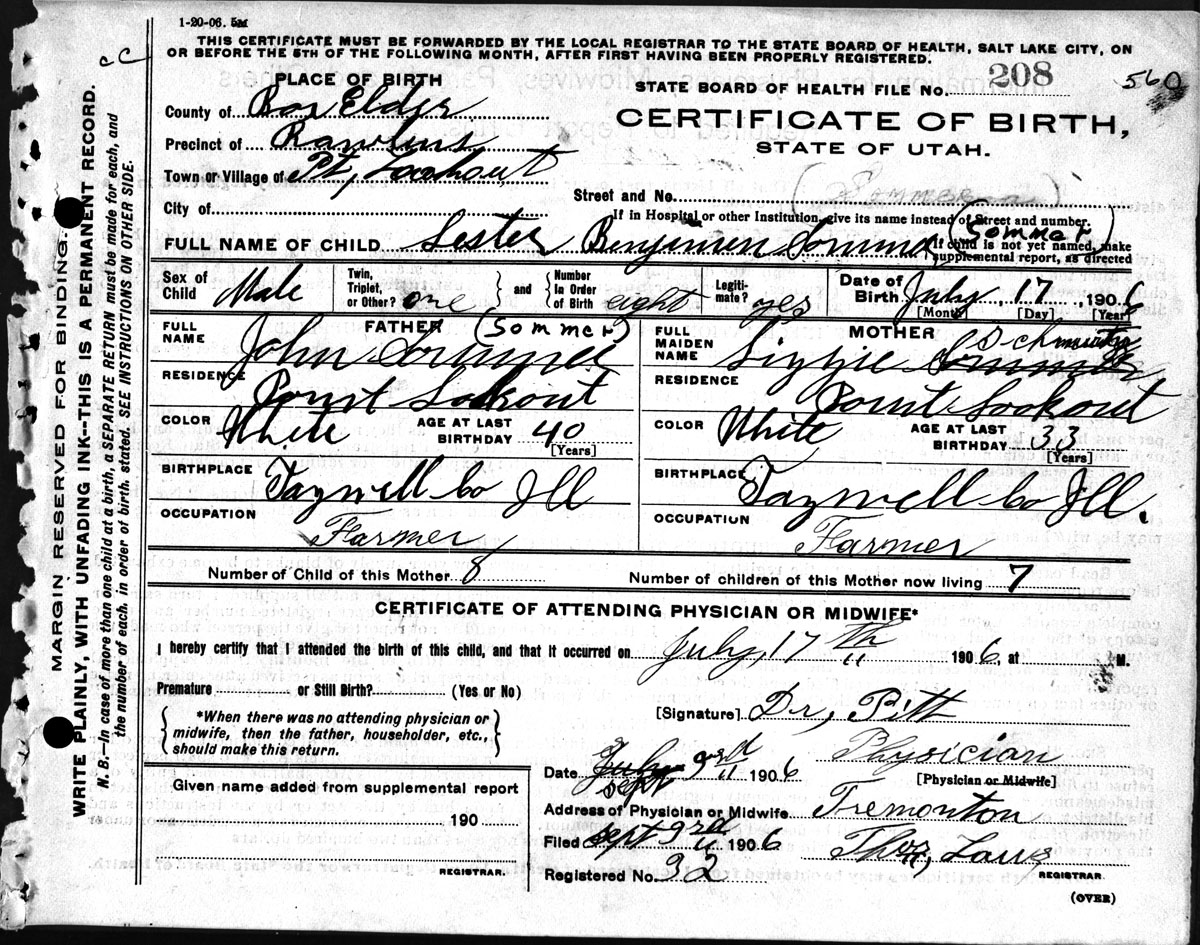 1-20-06. 5M
THIS CERTIFICATE MUST BE FORWARDED BY THE LOCAL REGISTRAR TO THE STATE BOARD OF HEALTH, SALT LAKE CITY, ON
OR BEFORE THE 5TH OF THE FOLLOWING MONTH, AFTER FIRST HAVING BEEN PROPERLY REGISTERED.
cc
560
PLACE OF BIRTH
STATE BOARD OF HEALTH FILE No. 208
County of Box Elder
CERTIFICATE OF BIRTH,
Precinct of Rawlins
STATE OF UTAH.
Town or Village of Pt, Lookout
Street and No.
City of
If in Hospital or other Institution, give its name instead of Street and number.
(Sommer)
FULL NAME OF CHILD Lester Benjimen Sommer
If child is not yet named, make
supplemental report, as directed
Sex of Child Male
Twin, Triplet, or Other? one and Number In Order of Birth eight
Legiti-mate? yes
Date of Birth July, 17, 1906
[Month] [Day] [Year]
FULL NAME FATHER (Sommer)
John Sommer
FULL MAIDEN NAME MOTHER Schmutz
Lizzie Sommer
RESIDENCE Point Lookout
RESIDENCE Point Lookout
COLOR White AGE AT LAST BIRTHDAY 40 [Years]
COLOR White AGE AT LAST BIRTHDAY 33 [Years]
BIRTHPLACE Tazwell Co Ill
BIRTHPLACE Tazwell Co Ill.
OCCUPATION Farmer
OCCUPATION Farmer
Number of Child of this Mother 8
Number of children of this Mother now living 7
CERTIFICATE OF ATTENDING PHYSICIAN OR MIDWIFE*
I hereby certify that I attended the birth of this child, and that it occurred on July, 17th 1906, at M.
Premature or Still Birth? (Yes or No)
*When there was no attending physician or
midwife, then the father, householder, etc.,
should make this return.
[Signature] Dr, Pitt
Date July 3rd 1906 Physician
Sept
[Physician or Midwife]
Given name added from supplemental report
190
REGISTRAR.
Address of Physician or Midwife Tremonton
Filed Sept 3rd 1906
REGISTRAR.
Registered No. 32
(OVER)
MARGIN RESERVED FOR BINDING.
WRITE PLAINLY, WITH UNFADING INK--THIS IS A PERMANENT RECORD.
N. B.--In case of more than one child at a birth, a SEPARATE RETURN must be made for each, and
the number of each, in order of birth, stated. SEE INSTRUCTIONS ON OTHER SIDE.